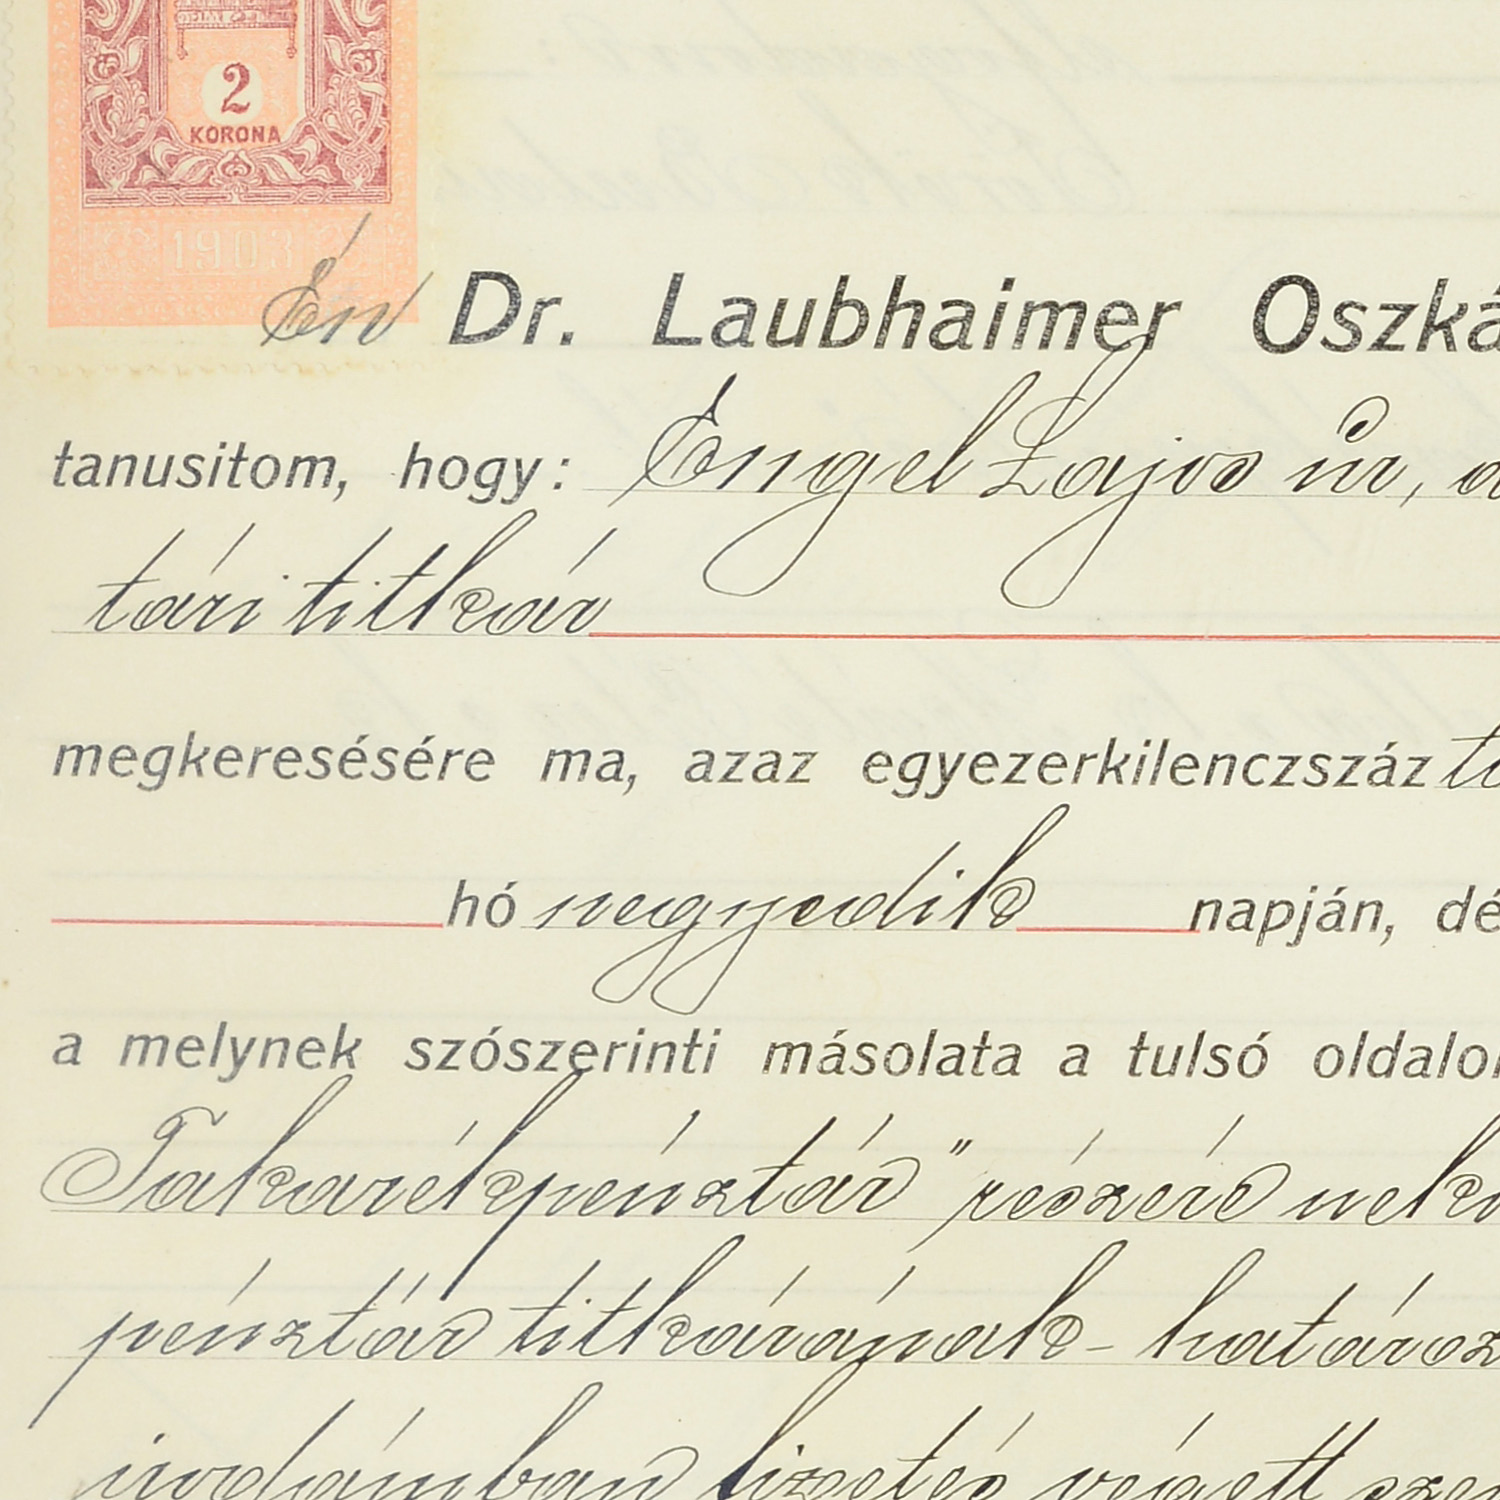 2
KORONA
1903
Én Dr. Laubhaimer Oszká
tanusitom, hogy: Engel Lajos úr, a
tári titkár
megkeresésére ma, azaz egyezerkilenczszáz ti
hó negyedik napján, dé
a melynek szószerinti másolata a tulsó oldalon
Takarékpénztár" részére neko
pénztár titkárának - határoz
irodámban fizetés végett sze